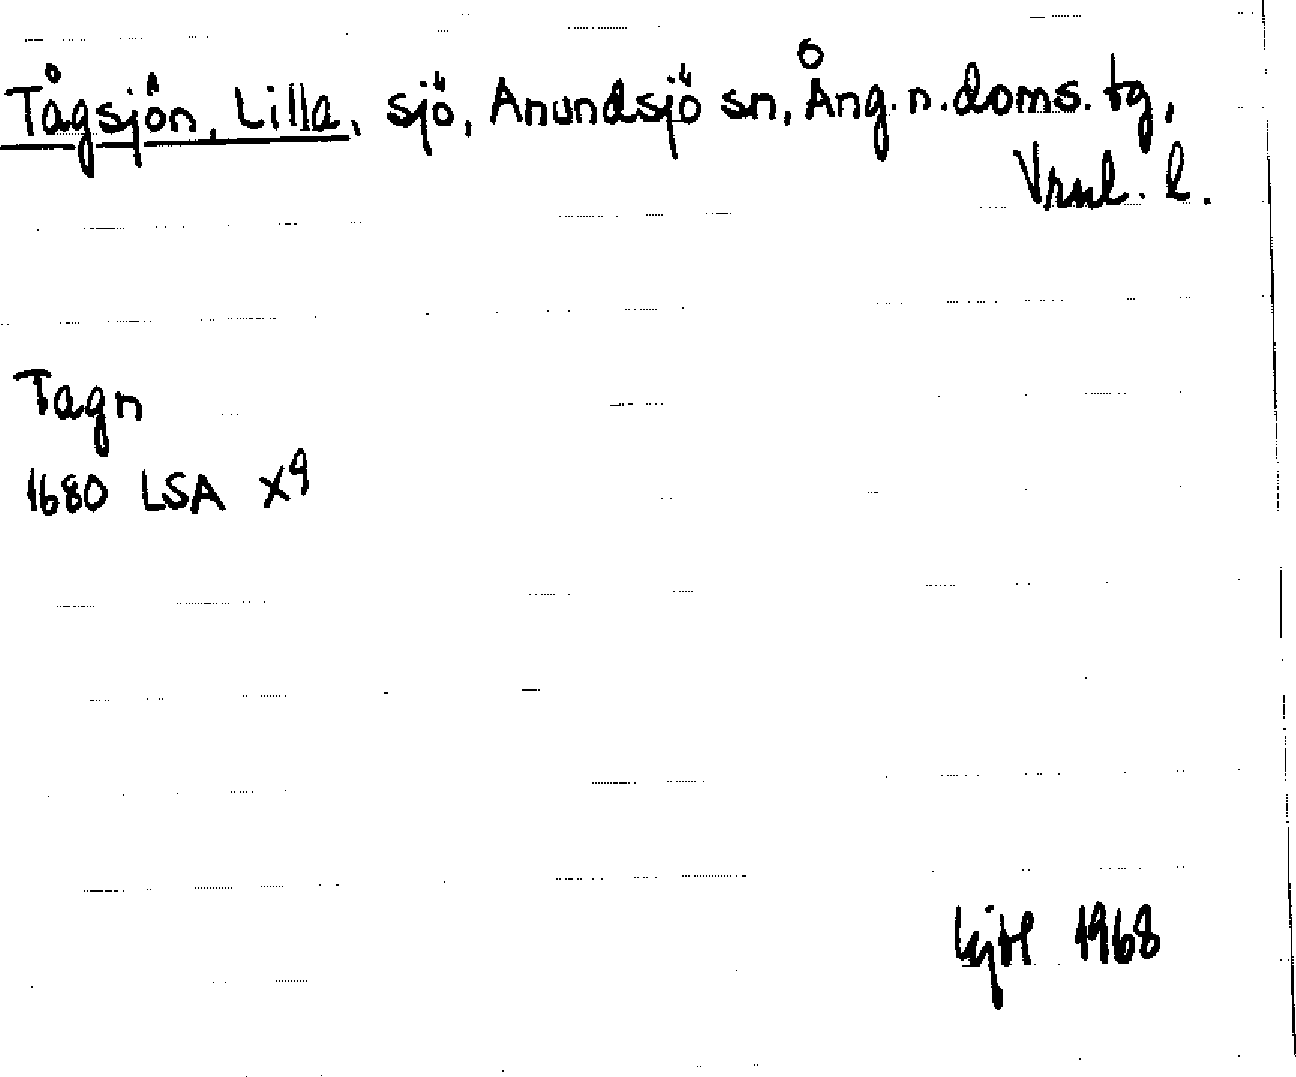 Tågsjön, Lilla, sjö, Anundsjö sn, Ång. n. doms. tg,
Vrnl. l.
Tagn
1680 LSA X9
1968